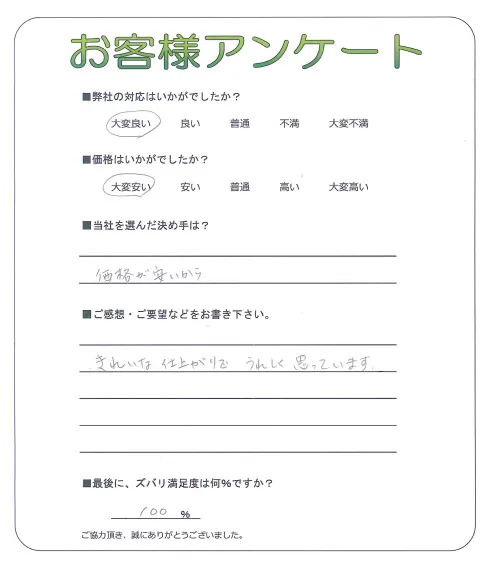 お客様アンケート
■弊社の対応はいかがでしたか？
大変良い 良い 普通 不満 大変不満
■価格はいかがでしたか？
大変安い 安い 普通 高い 大変高い
■当社を選んだ決め手は？
価格が安いから
■ご感想・ご要望などをお書き下さい。
きれいな仕上がりで うれしく思っています.
■最後に、ズバリ満足度は何%ですか？
100 %
ご協力頂き、誠にありがとうございました。